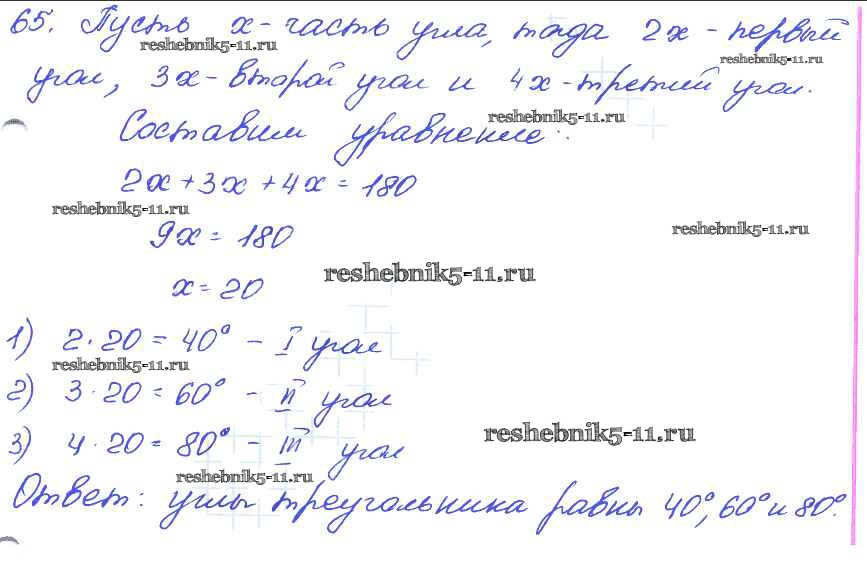 65. Пусть x - часть угла, тогда 2x - первый
reshebnik5-11.ru
reshebnik5-11.ru
угол, 3x - второй угол и 4x - третий угол.
reshebnik5-11.ru
Составим уравнение:
2x + 3x + 4x = 180
reshebnik5-11.ru
9x = 180
reshebnik5-11.ru
reshebnik5-11.ru
x = 20
1) 2 · 20 = 40° - I угол
reshebnik5-11.ru
2) 3 · 20 = 60° - II угол
3) 4 · 20 = 80° - III угол
reshebnik5-11.ru
reshebnik5-11.ru
Ответ: углы треугольника равны 40°, 60° и 80°.